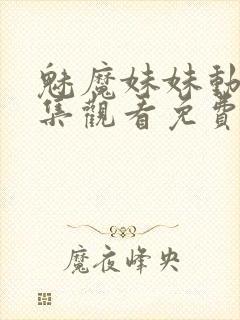 魅魔妹妹動
集觀看免費
魔夜峰央